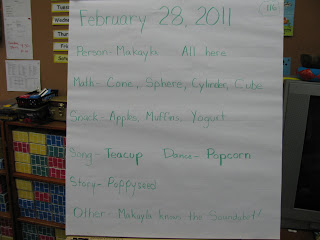 February 28, 2011
116
Person- Makayla All here
Math- Cone, Sphere, Cylinder, Cube
Snack- Apples, Muffins, Yogurt
Song- Teacup Dance- Popcorn
Story- Poppyseed
Other- Makayla knows the